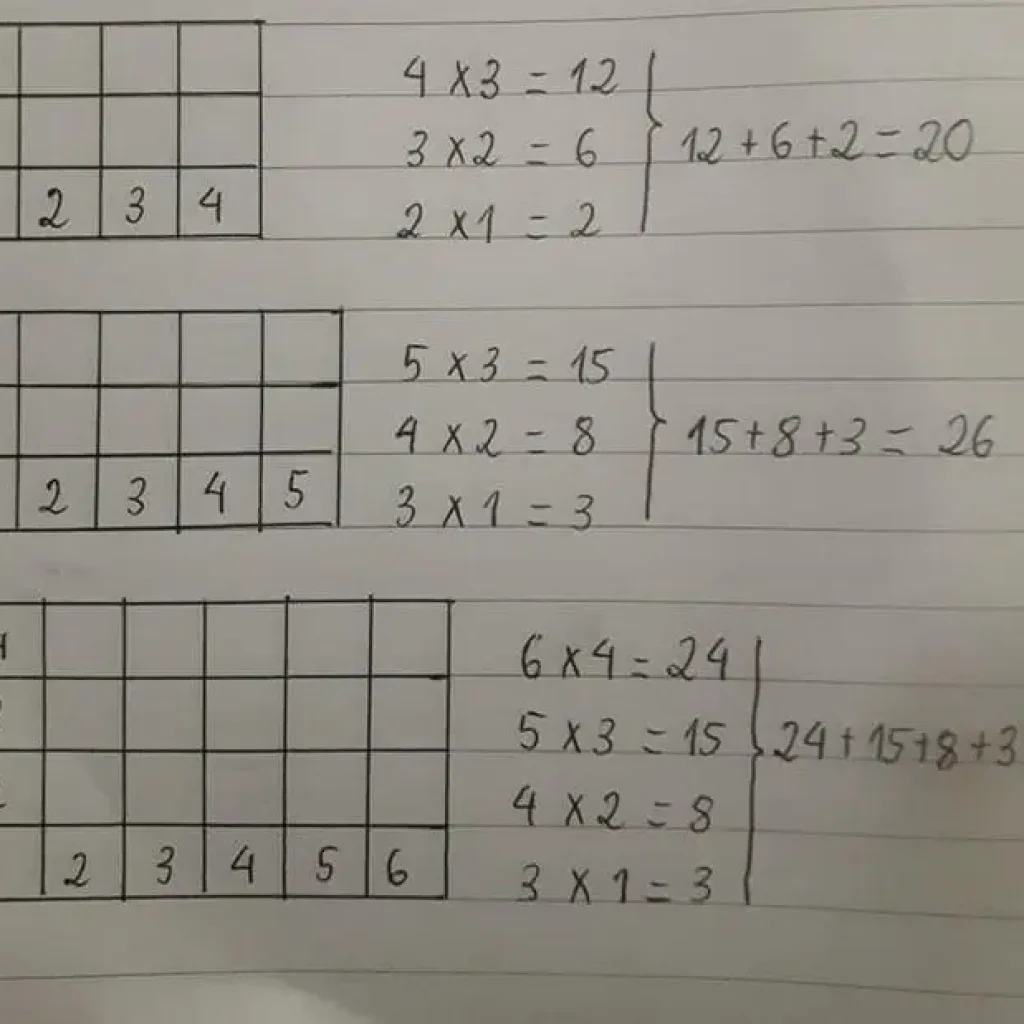 4 x 3 = 12
3 x 2 = 6
12 + 6 + 2 = 20
2 3 4
2 x 1 = 2
5 x 3 = 15
4 x 2 = 8
15 + 8 + 3 = 26
2 3 4 5
3 x 1 = 3
6 x 4 = 24
5 x 3 = 15
24 + 15 + 8 + 3
4 x 2 = 8
2 3 4 5 6
3 x 1 = 3